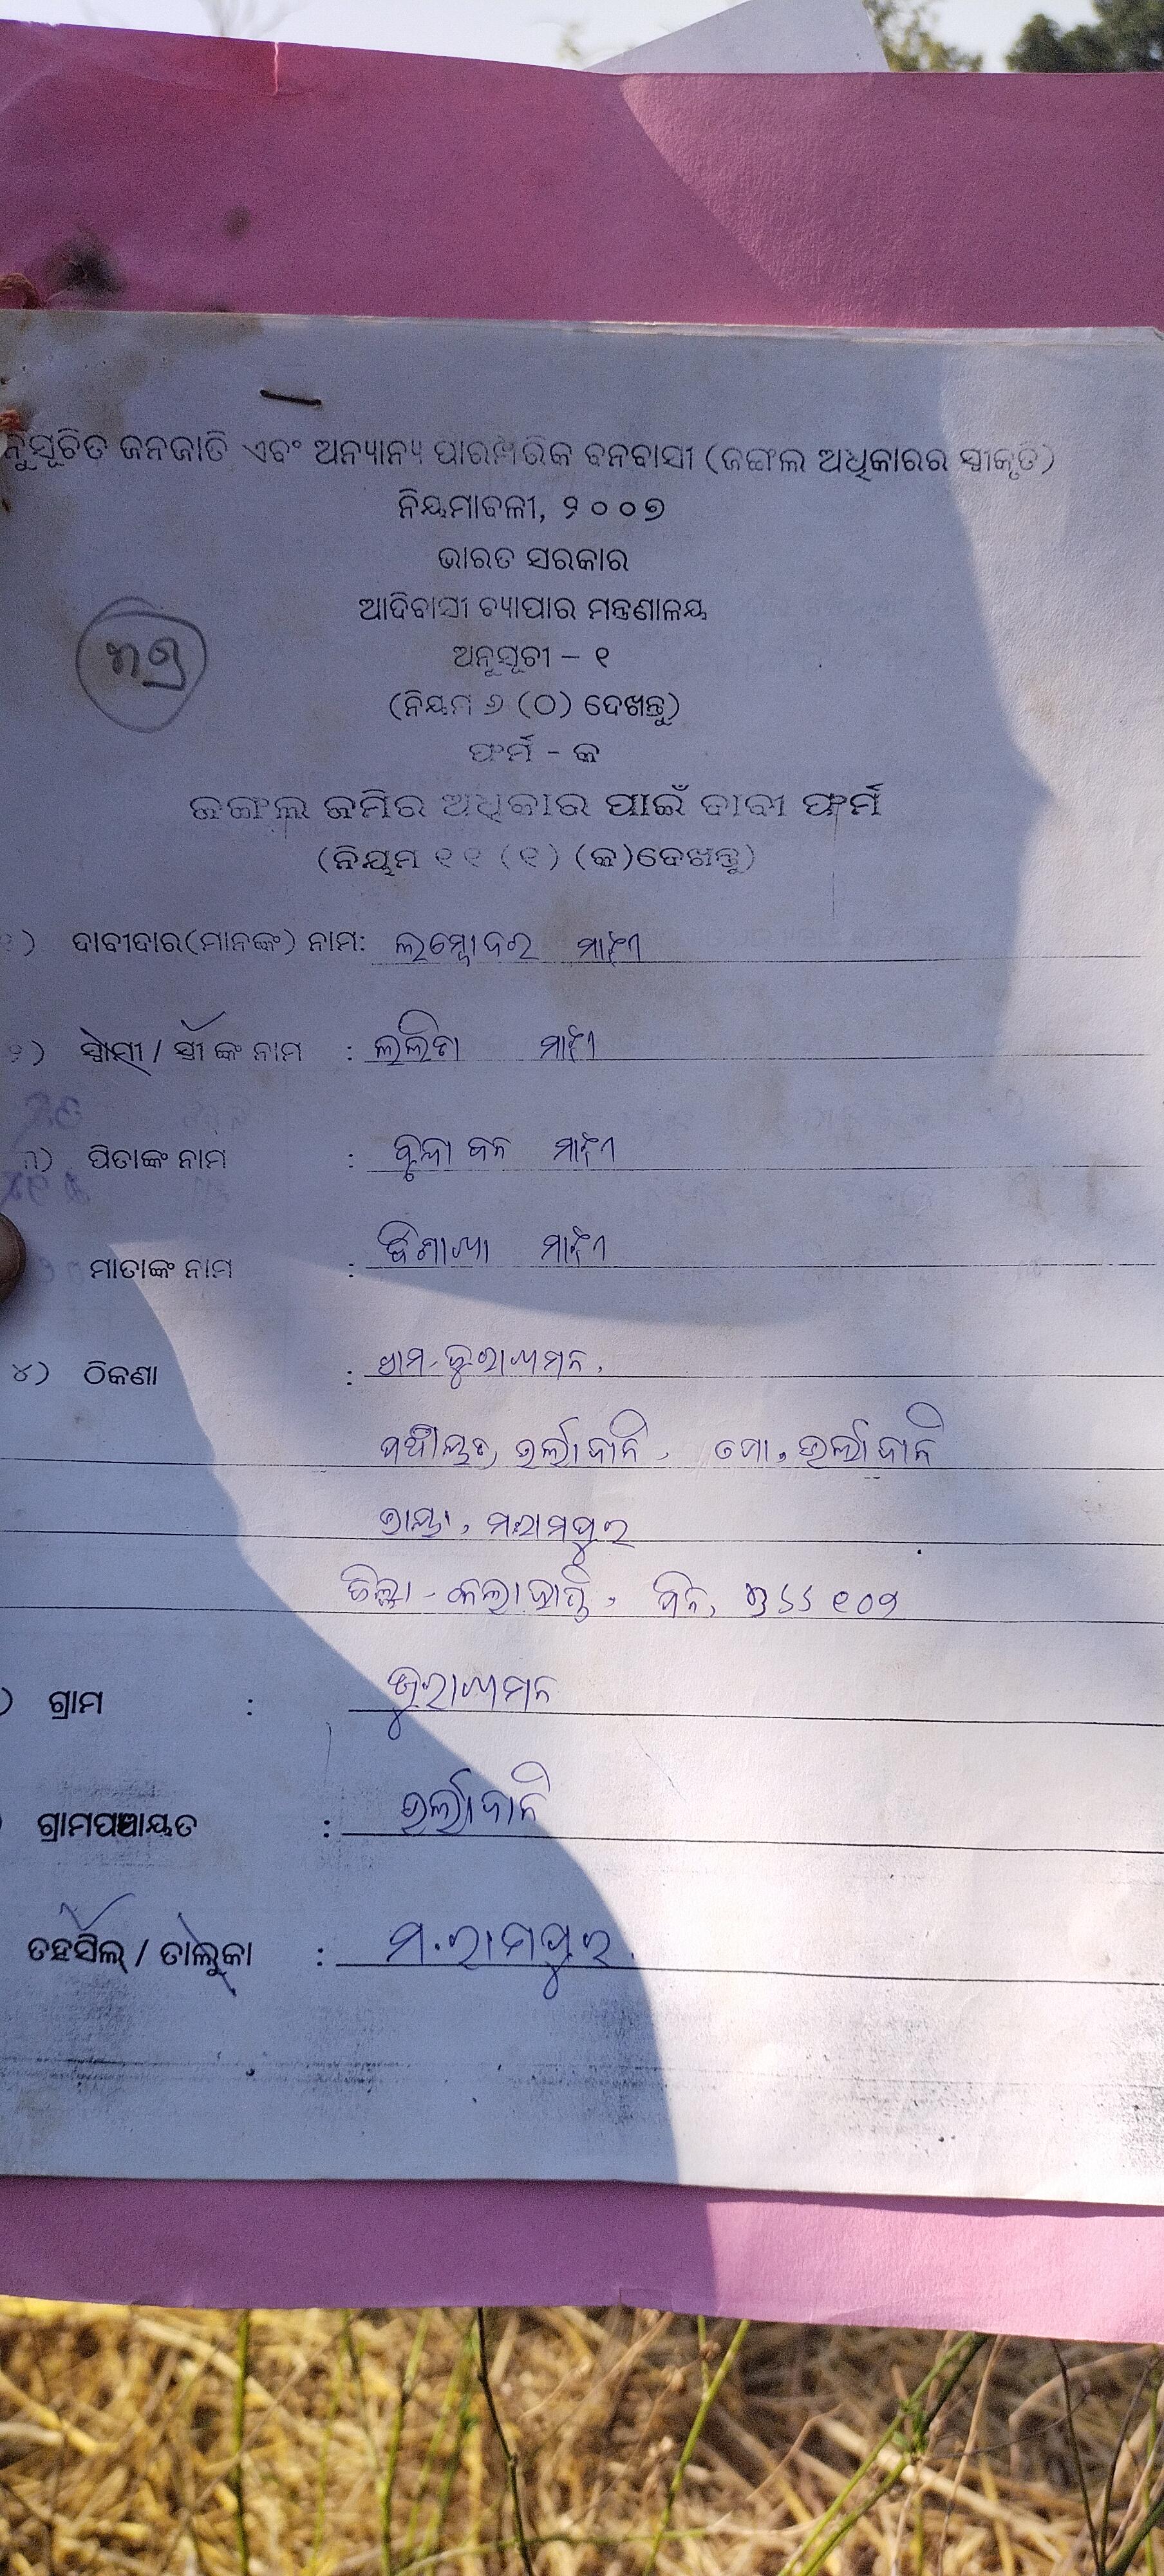 ନୁସୂଚିତ ଜନଜାତି ଏବଂ ଅନ୍ୟାନ୍ୟ ପାରମ୍ପରିକ ବନବାସୀ (ଜଙ୍ଗଲ ଅଧିକାରର ସ୍ୱୀକୃତି)
ନିୟମାବଳୀ, ୨୦୦୭
ଭାରତ ସରକାର
ଆଦିବାସୀ ବ୍ୟାପାର ମନ୍ତ୍ରଣାଳୟ
ଅନୁସୂଚୀ – ୧
(ନିୟମ ୬ (ଠ) ଦେଖନ୍ତୁ)
ଫର୍ମ - କ
ଜଙ୍ଗଲ ଜମିର ଅଧିକାର ପାଇଁ ଦାବୀ ଫର୍ମ
(ନିୟମ ୧୧ (୧) (କ)ଦେଖନ୍ତୁ)
୧) ଦାବୀଦାର(ମାନଙ୍କ) ନାମ: ଲମ୍ବୋଦର ମାଝୀ
୨) ସ୍ୱାମୀ / ସ୍ତ୍ରୀ ଙ୍କ ନାମ : ଲଲିତା ମାଝୀ
୩) ପିତାଙ୍କ ନାମ : ବୃନ୍ଦାବନ ମାଝୀ
ମାତାଙ୍କ ନାମ : ବିଶାଖା ମାଝୀ
୪) ଠିକଣା : ଗ୍ରାମ-
ପଞ୍ଚାୟତ, ଉର୍ଲାଦାନି, ପୋ, ଉର୍ଲାଦାନି
ମ.ରାମପୁର
ଜିଲ୍ଲା - କଳାହାଣ୍ଡି, ପିନ, ୭୬୬୧୦୨
) ଗ୍ରାମ :
) ଗ୍ରାମପଞ୍ଚାୟତ : ଉର୍ଲାଦାନି
ତହସିଲ୍ / ତାଲୁକା : ମ.ରାମପୁର